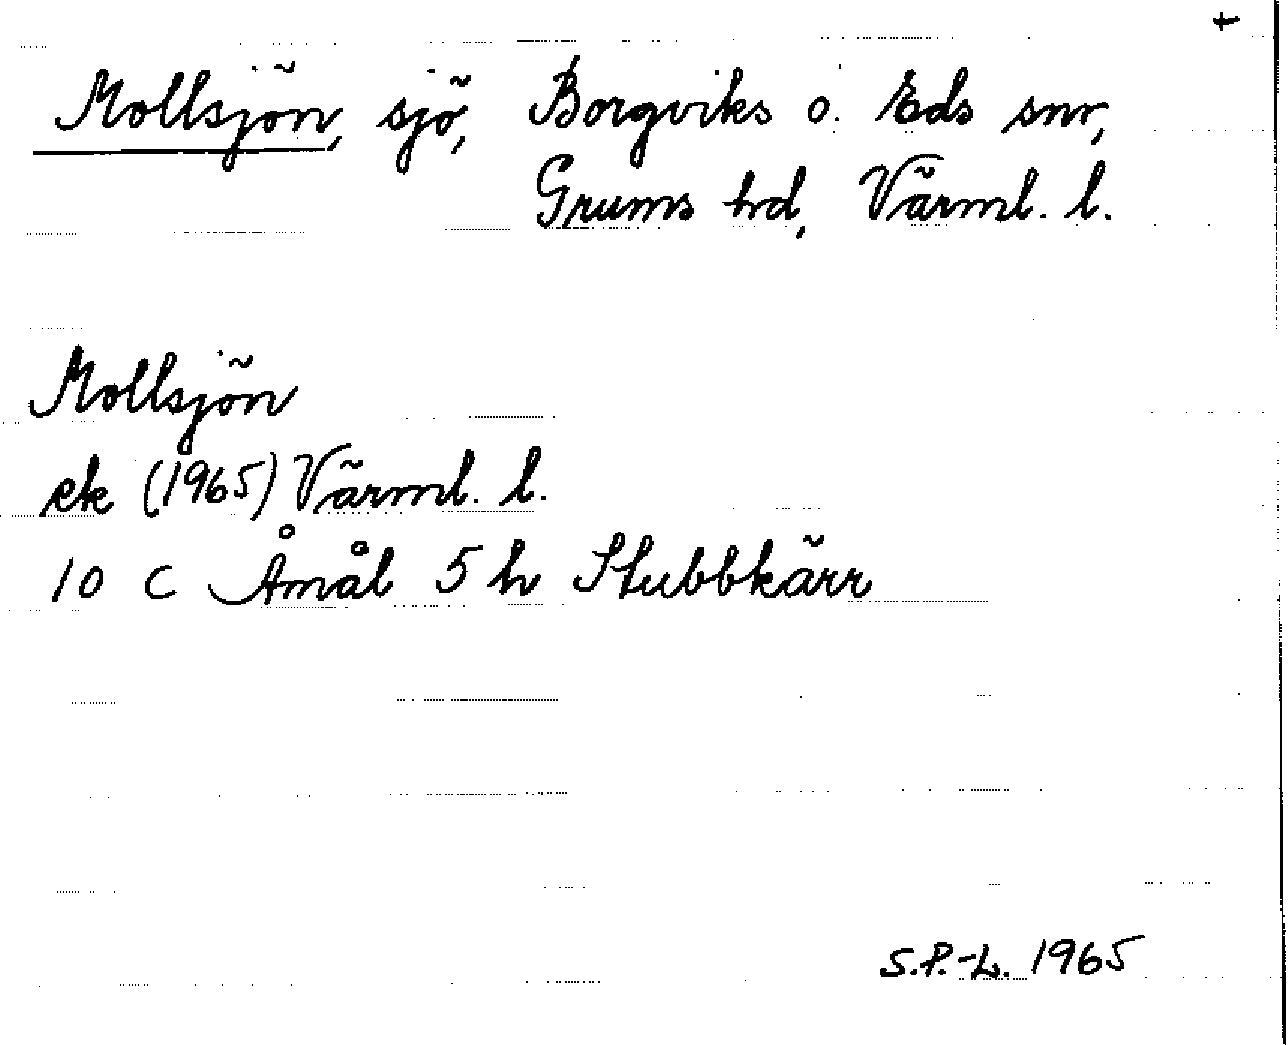 +
Mollsjön, sjö, Borgviks o. Eds snr,
Grums hd, Värml. l.
Mollsjön
ek (1965) Värml. l.
10 C Åmål 5 h Stubbkärr
S.P.-L. 1965